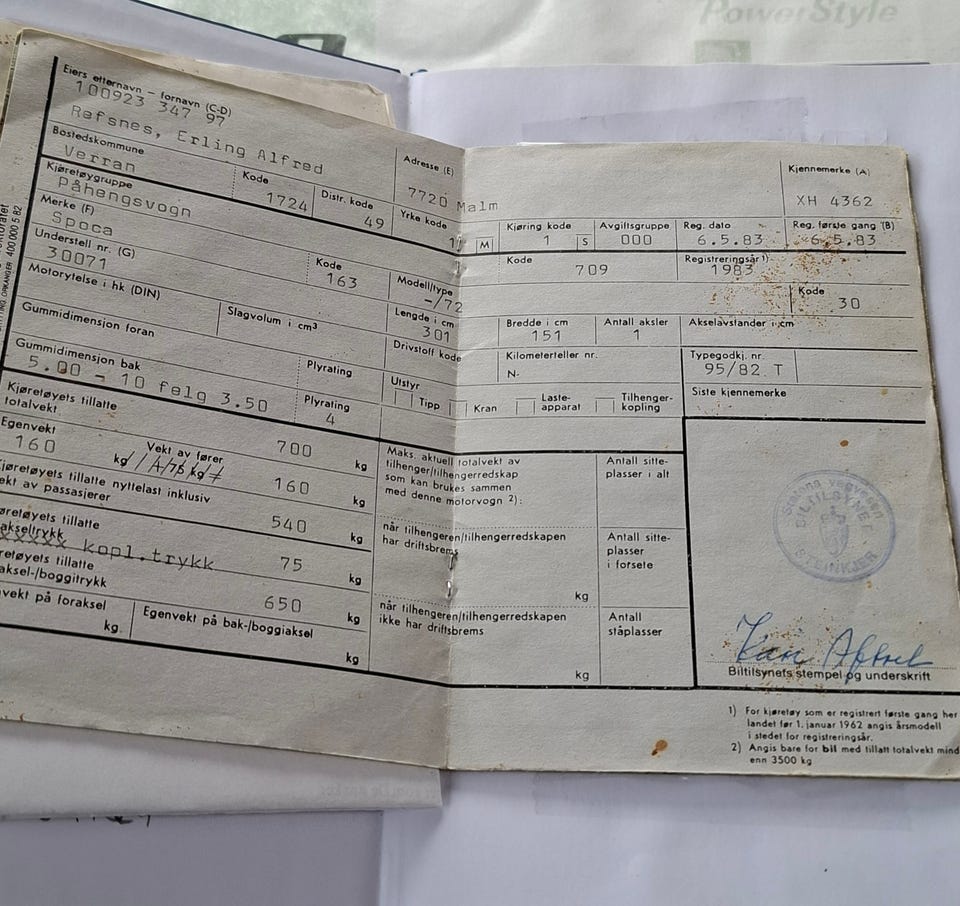 PowerStyle
Eiers etternavn – fornavn (C-D)
100923 347 97
Refsnes, Erling Alfred
Adresse (E)
7720 Malm
Kjennemerke (A)
XH 4362
Bostedskommune
Verran
Kode
1724
Distr. kode
49
Yrke kode
M
Kjøring kode
1
S
Avgiftsgruppe
000
Reg. dato
6.5.83
Reg. første gang (B)
6.5.83
Kjøretøygruppe
Påhengsvogn
Kode
709
Registreringsår 1)
1983
Merke (F)
Spoca
Kode
163
Modell/type
-/72
Kode
30
Understell nr. (G)
30071
Lengde i cm
301
Bredde i cm
151
Antall aksler
1
Akselavstander i cm
Motorytelse i hk (DIN)
Slagvolum i cm³
Drivstoff kode
Kilometerteller nr.
N.
Typegodkj. nr.
95/82 T
Gummidimensjon foran
Plyrating
Utstyr
Tipp
Kran
Laste-
apparat
Tilhenger-
kopling
Siste kjennemerke
Gummidimensjon bak
5.00 - 10 felg 3.50
Plyrating
4
Kjøretøyets tillatte
totalvekt
700
kg
Egenvekt
160
kg
Vekt av fører
160
kg
Kjøretøyets tillatte nyttelast inklusiv
vekt av passasjerer
540
kg
kopl.trykk
75
kg
650
kg
kg
Egenvekt på bak-/boggiaksel
kg
Maks. aktuell totalvekt av
tilhenger/tilhengerredskap
som kan brukes sammen
med denne motorvogn 2):
når tilhengeren/tilhengerredskapen
har driftsbrems
kg
når tilhengeren/tilhengerredskapen
ikke har driftsbrems
kg
Antall sitte-
plasser i alt
Antall sitte-
plasser
i forsete
Antall
ståplasser
Statens vegvesen
BILTILSYNET
STEINKJER
Biltilsynets stempel og underskrift
1) For kjøretøy som er registrert første gang her
landet før 1. januar 1962 angis årsmodell
i stedet for registreringsår.
2) Angis bare for bil med tillatt totalvekt mind
enn 3500 kg